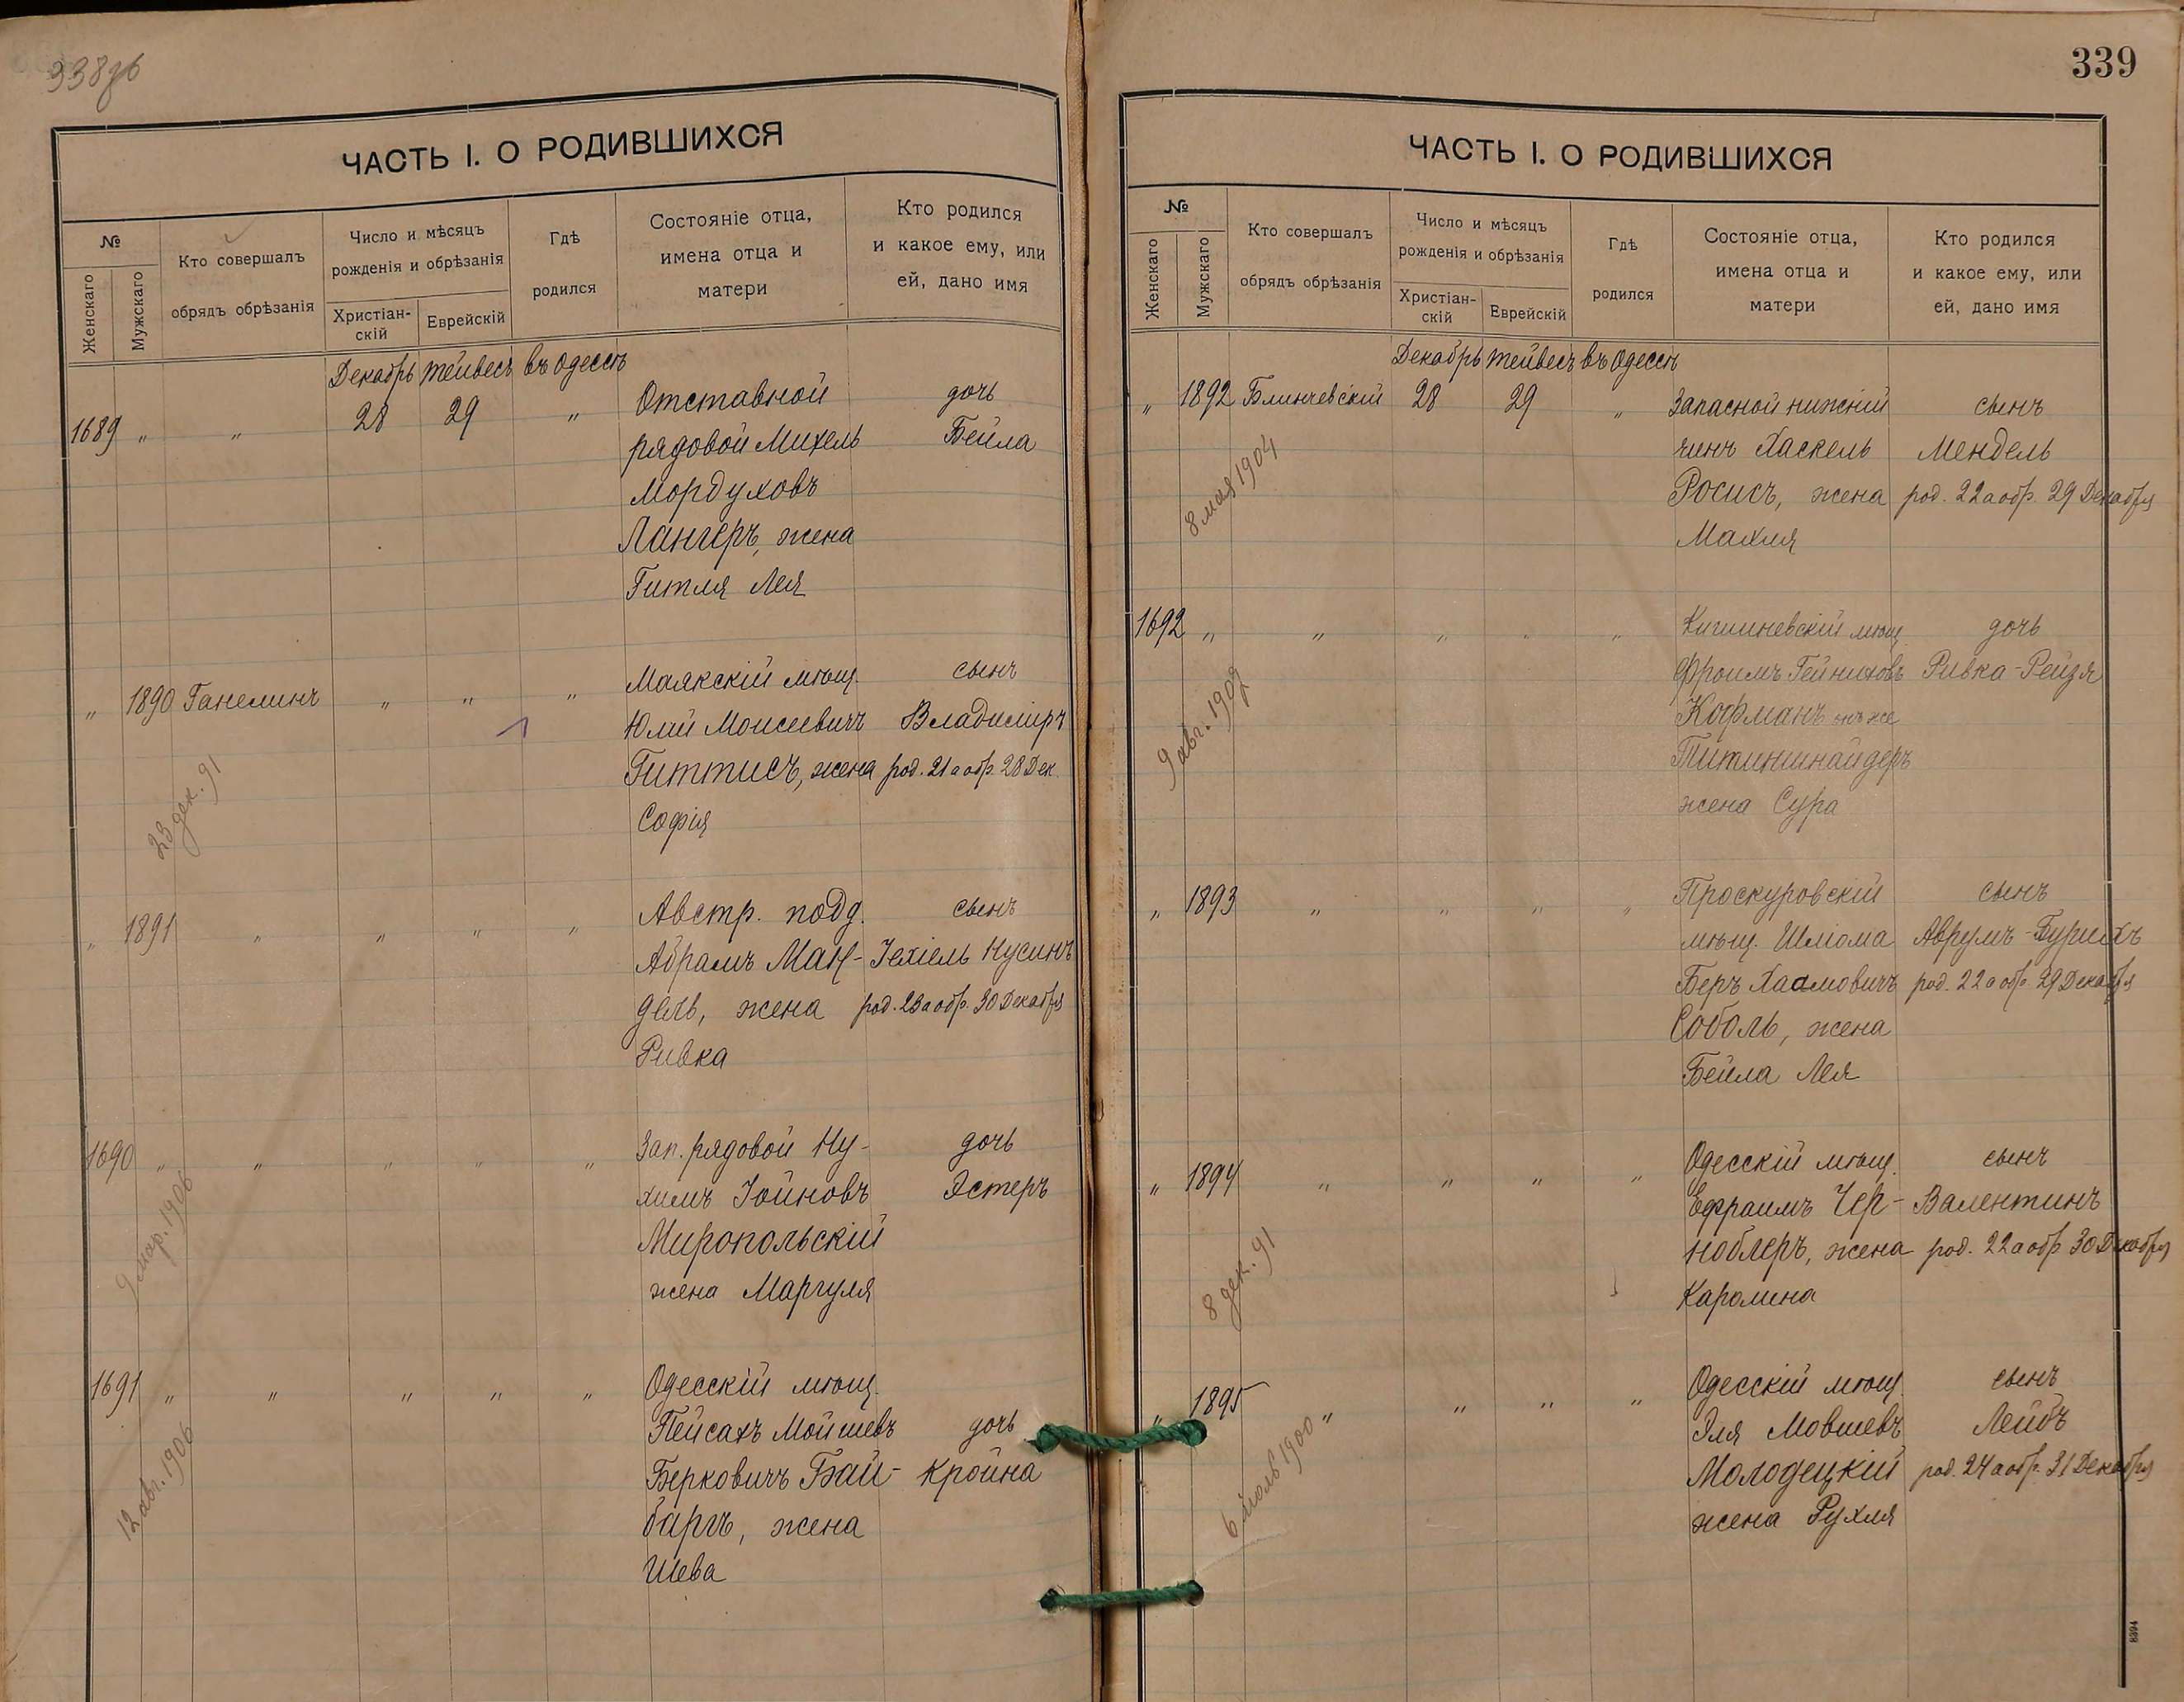 338 об
ЧАСТЬ I. О РОДИВШИХСЯ
№
Женскаго
Мужскаго
Кто совершалъ
обрядъ обрѣзанія
Число и мѣсяцъ
рожденія и обрѣзанія
Христіан-
скій
Еврейскій
Гдѣ
родился
Состояніе отца,
имена отца и
матери
Кто родился
и какое ему, или
ей, дано имя
Декабрь Тейвесъ въ Одессѣ
1689 " " 28 29 " Отставной дочь
рядовой Михель Бейла
Мордуховъ
Лангеръ, жена
Гитля Лея
" 1890 Ганелинъ " " " Маякскій мѣщ. сынъ
Юлій Моисеевичъ Владиміръ
Гиттисъ, жена род. 21 а обр. 28 Дек.
Софія
23 дек. 91
" 1891 " " " " Австр. подд. сынъ
Абрамъ Ман- Іехіель Нусинъ
дель, жена род. 23 а обр. 30 Декабря
Ривка
1690 " " " " " Зап. рядовой Ну- дочь
химъ Іойновъ Эстеръ
Миропольскій
жена Маргуля
9 мар. 1906
1691 " " " " " Одесскій мѣщ.
Пейсахъ Мойшевъ дочь
Берковичъ Бай- Кройна
баргъ, жена
Шева
12 авг. 1906
339
ЧАСТЬ I. О РОДИВШИХСЯ
№
Женскаго
Мужскаго
Кто совершалъ
обрядъ обрѣзанія
Число и мѣсяцъ
рожденія и обрѣзанія
Христіан-
скій
Еврейскій
Гдѣ
родился
Состояніе отца,
имена отца и
матери
Кто родился
и какое ему, или
ей, дано имя
Декабрь Тейвесъ въ Одессѣ
" 1892 Блинчевскій 28 29 " Запасной нижній сынъ
чинъ Хаскель Мендель
Росисъ, жена род. 22 а обр. 29 Декабря
Махля
8 мая 1904
1692 " " " " " Кишиневскій мѣщ. дочь
Фроимъ Гейниховъ Ривка-Рейзя
Кофманъ онъ же
жена Сура
9 авг. 1909
" 1893 " " " " Проскуровскій сынъ
мѣщ. Шліома Аврумъ-Бурихъ
Беръ Хаамовичъ род. 22 а обр. 29 Декабря
Соболь, жена
Бейла Лея
" 1894 " " " " Одесскій мѣщ. сынъ
Ефраимъ Чер- Валентинъ
ноблеръ, жена род. 22 а обр 30 Декабря
Каролина
8 дек. 91
" 1895 " " " " Одесскій мѣщ. сынъ
Эля Мовшевъ Лейбъ
Молодецкій род. 24 а обр. 31 Декабря
жена Рухля
6 июль 1900
8394